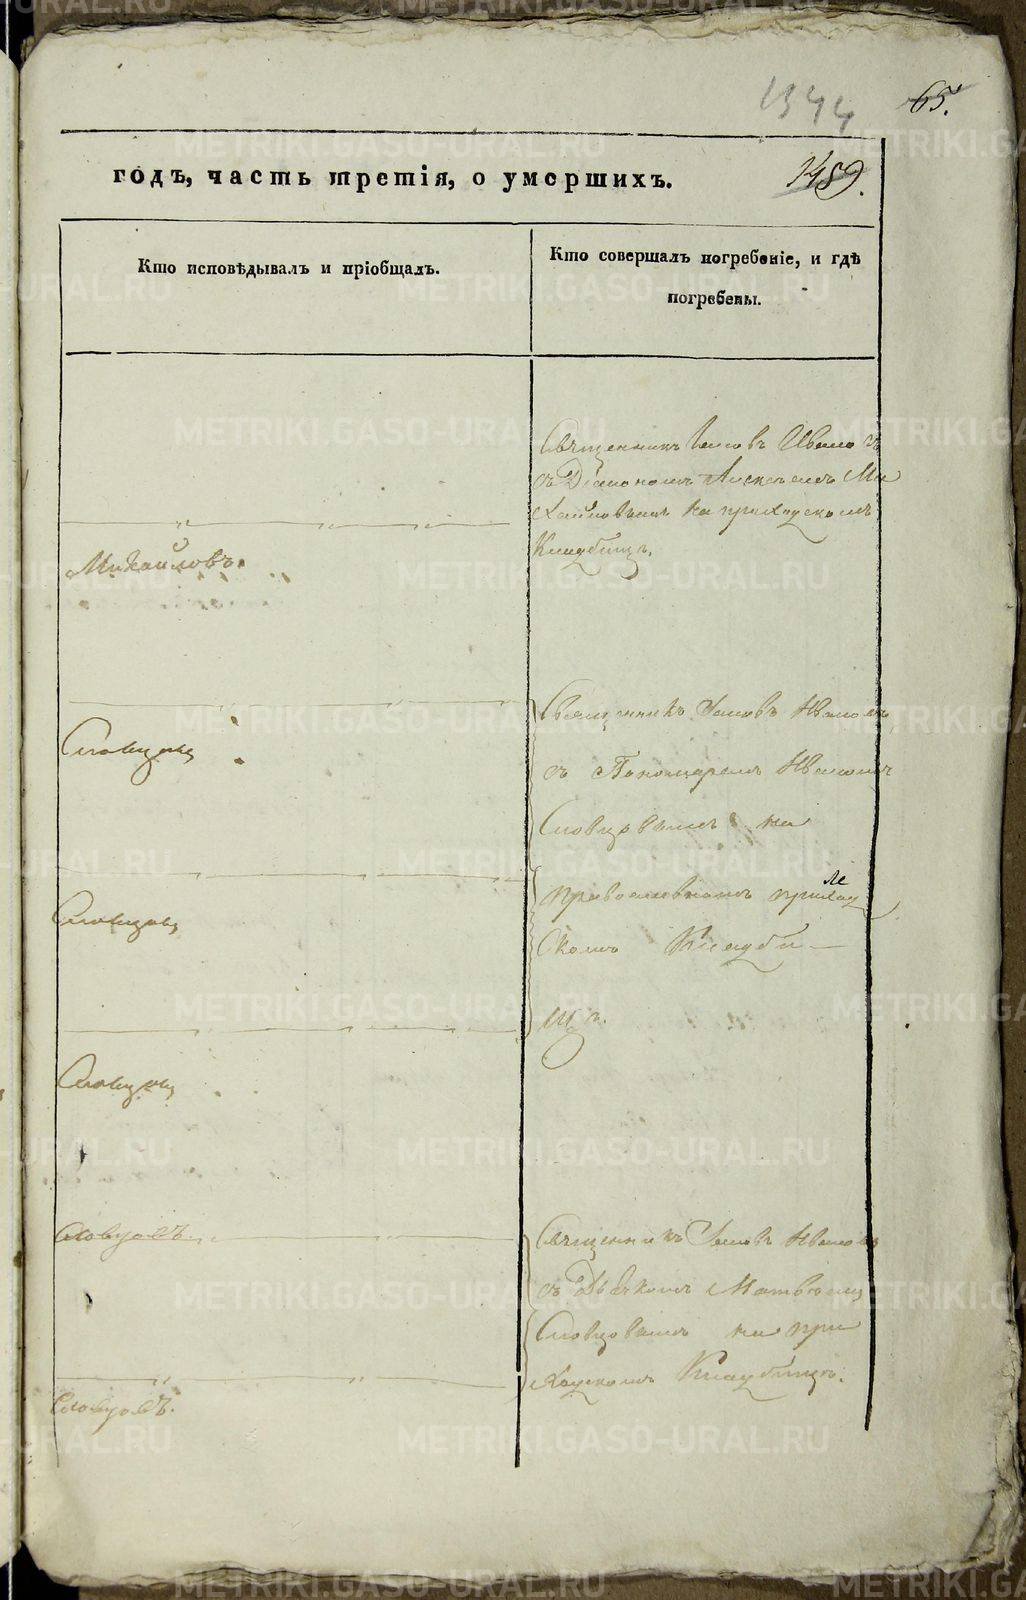 1344
65.
годъ, часть третія, о умершихъ.
1489.
Кто исповѣдывалъ и пріобщалъ.
Кто совершалъ погребеніе, и гдѣ
погребены.
Михайловъ.
Словцовъ
Словцовъ
Словцовъ
Словцовъ.
Словцовъ.
Священникъ Іаковъ Ивановъ
съ Діакономъ Алексѣемъ Ми
хайловымъ на приходскомъ
Кладбищѣ.
Священникъ Іаковъ Ивановъ
съ Пономаремъ Иваномъ
Словцовымъ на
православномъ приход
скомъ Кладби-
щѣ.
Священникъ Іаковъ Ивановъ
съ Дьячкомъ Матвѣемъ
Словцовымъ на при
ходскомъ Кладбищѣ.
METRIKI.GASO-URAL.RU